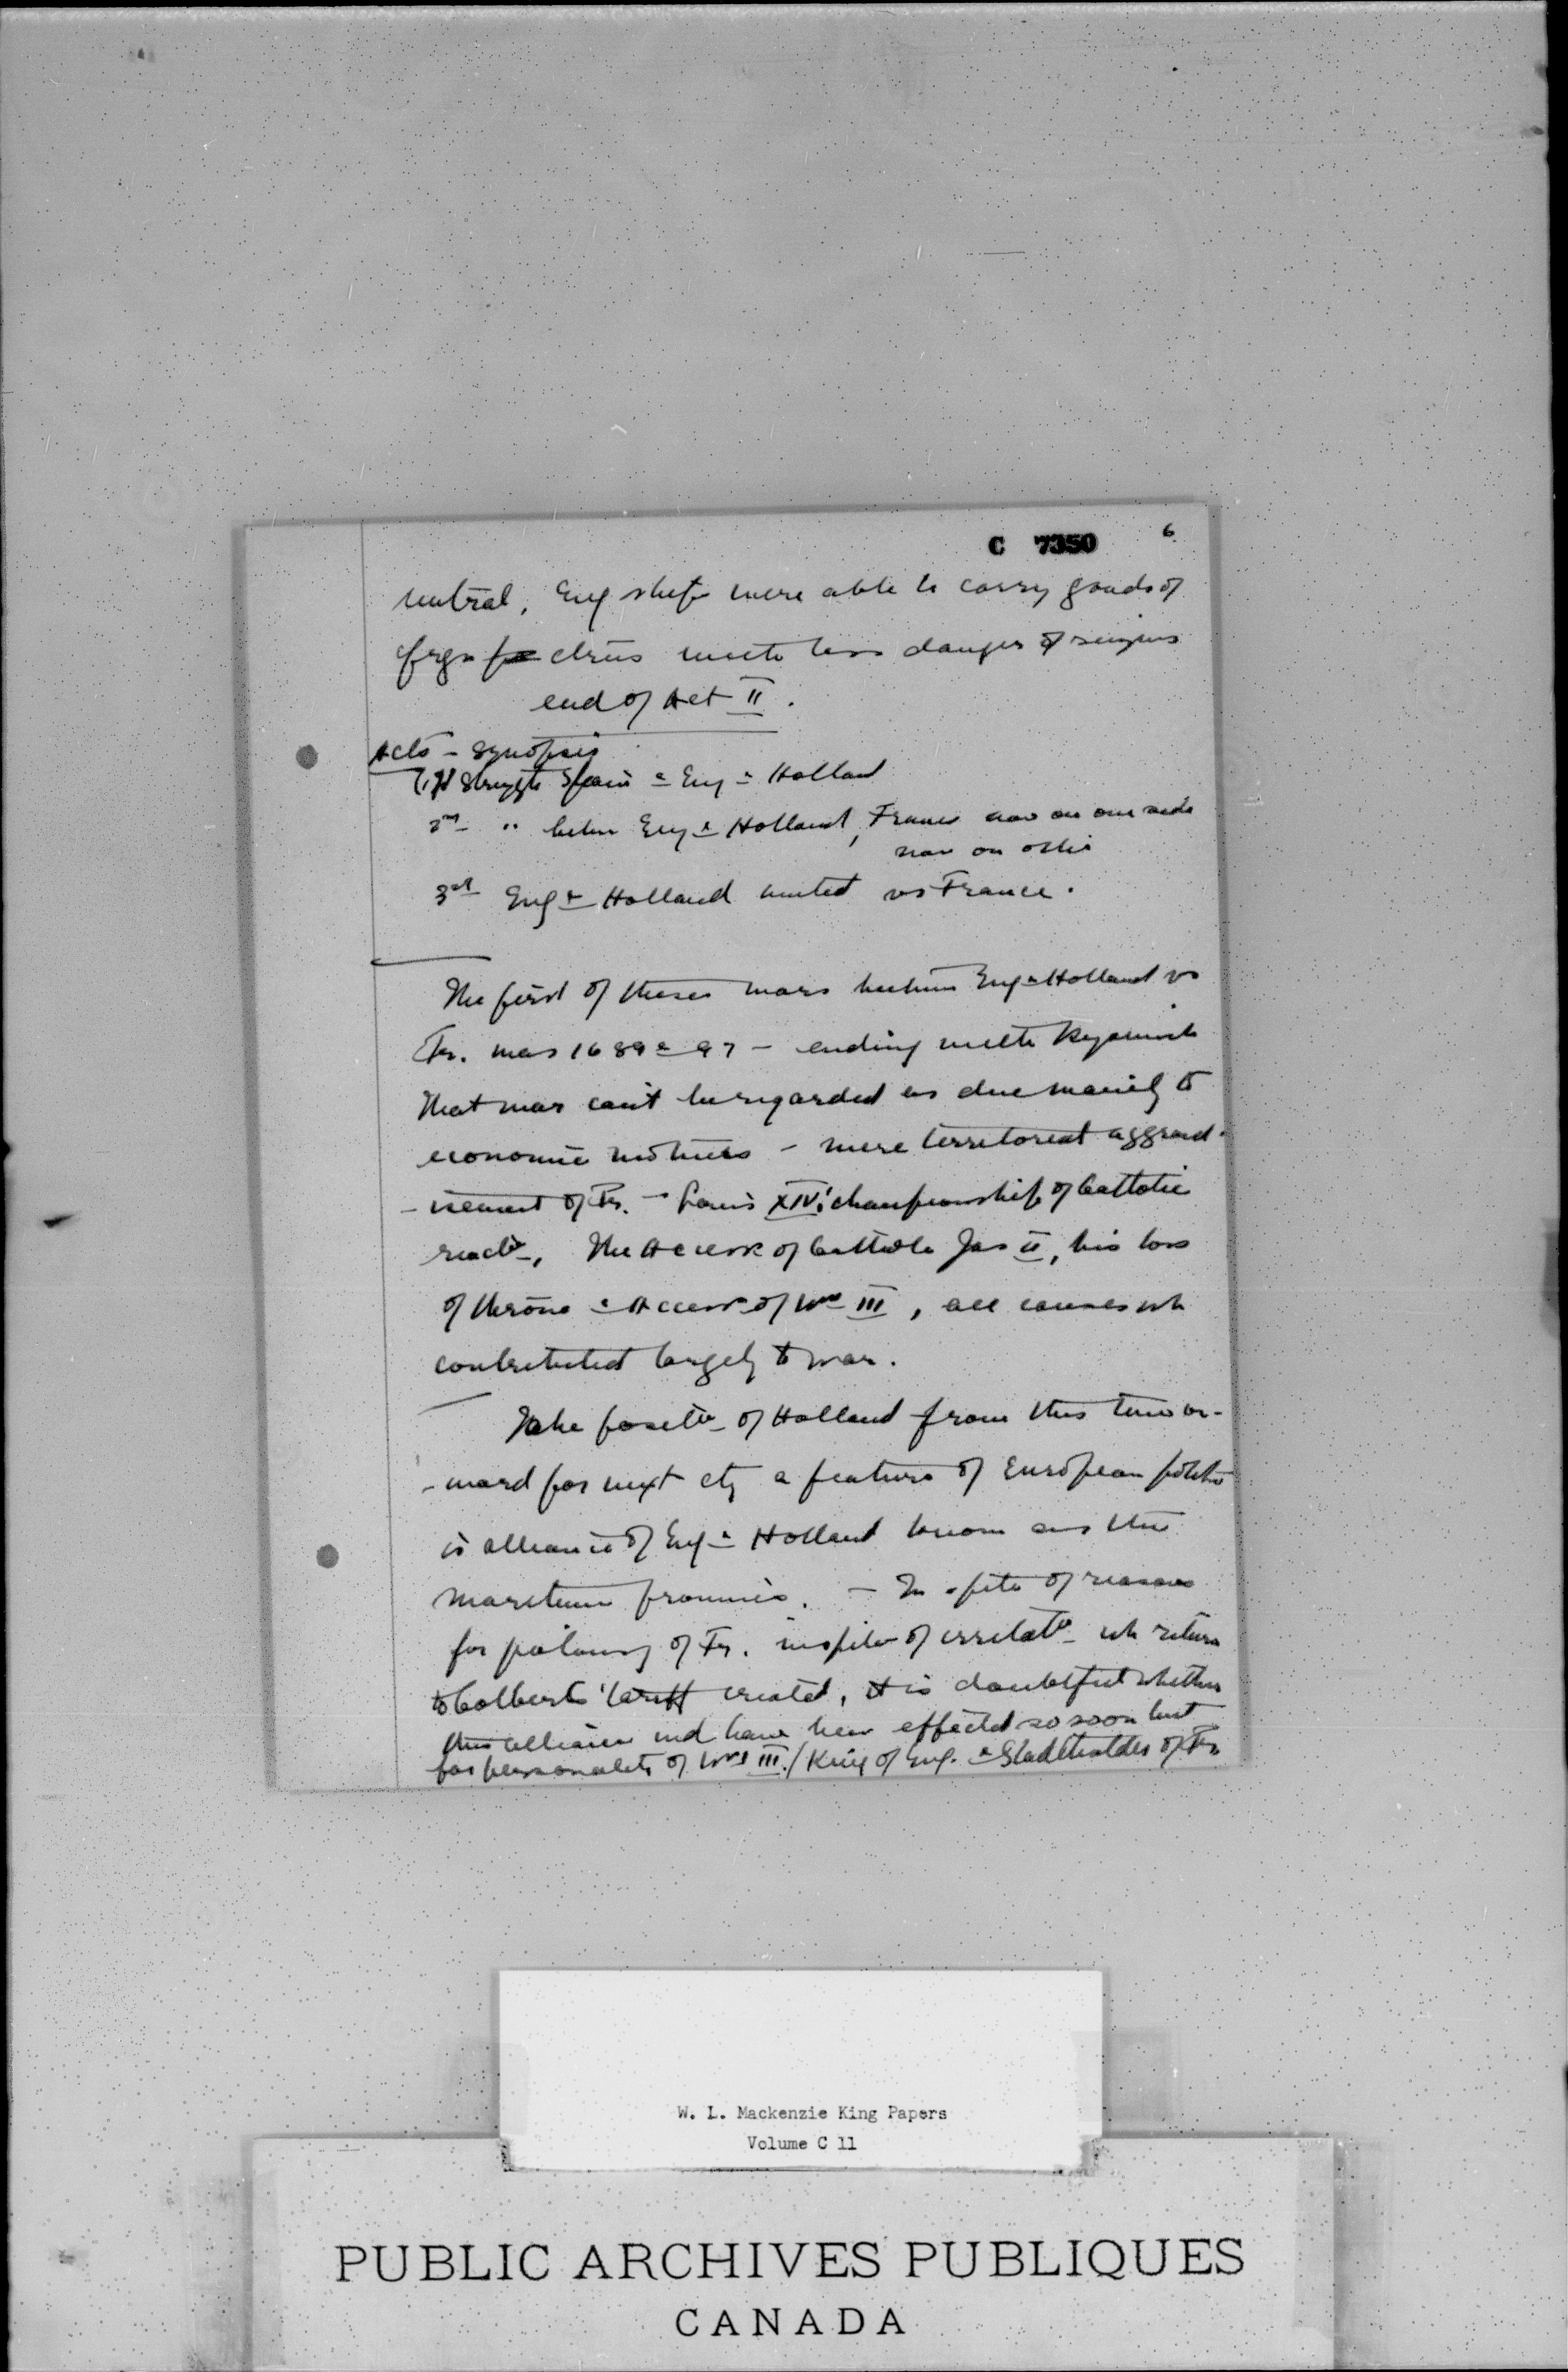 C 7350 6
neutral, Eng ships were able to carry goods of
end of Act II.
Acts - Synopsis
(1) Struggle Spain & Eng & Holland
2nd " betwn Eng & Holland, France now on one side
now on other
3rd Eng & Holland united vs France.
The first of these wars between Eng & Holland vs
Fr. was 1689 & 97 - ending with Ryswick
That war can't be regarded as due mainly to
economic motives - mere territorial aggrand-
-isement of Fr. - Louis XIV's championship of Catholic
react'n, The Access'n of Catholic Jas II, his loss
of throne & Access'n of Wm III, all causes wh
contributed largely to war.
The posit'n of Holland from this time on-
-ward for next cty a feature of European politics
is alliance of Eng & Holland known as the
Maritime provinces. - In spite of reasons
for jealousy of Fr. in spite of irritat'n wh return
to Colbert's tariff created, it is doubtful whether
this alliance wd have been effected so soon but
for personality of Wm III./King of Eng. & Stadtholder of
W. L. Mackenzie King Papers
Volume C 11
PUBLIC ARCHIVES PUBLIQUES
CANADA